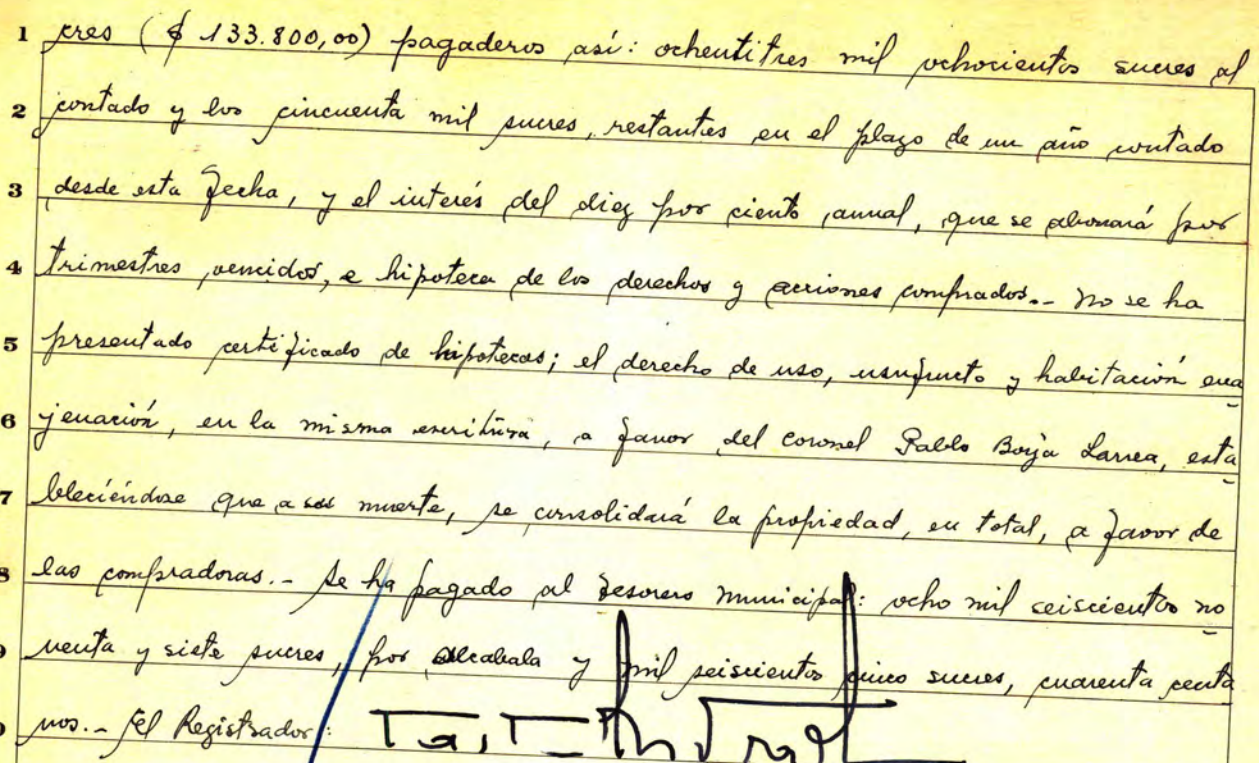 1 cres ($ 133.800,00) pagaderos así: ochentitres mil ochocientos sucres al
2 contado y los cincuenta mil sucres, restantes en el plazo de un año contado
3 desde esta fecha, y el interés del diez por ciento anual, que se abonará por
4 trimestres vencidos, e hipoteca de los derechos y acciones comprados.- No se ha
5 presentado certificado de hipotecas; el derecho de uso, usufructo y habitación ena
6 jenación, en la misma escritura, a favor del coronel Pablo Borja Larrea, esta
7 bleciéndose que a su muerte, se consolidará la propiedad, en total, a favor de
8 las compradoras.- Se ha pagado al Tesorero Municipal: ocho mil seiscientos no
venta y siete sucres, por alcabala y mil seiscientos cinco sucres, cuarenta centa
vos.- El Registrador: